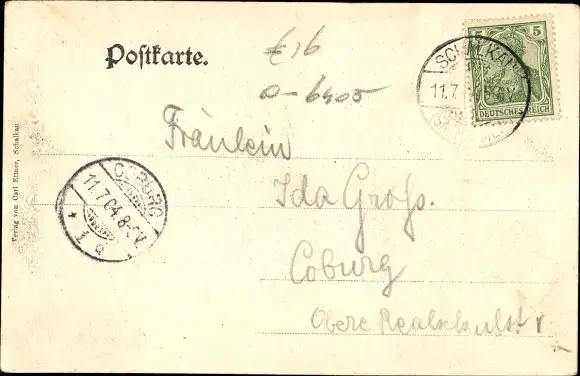 Postkarte.
£16
0-6405
5 5
DEUTSCHES REICH
11.7
Fräulein
Ida Groß.
Coburg
Obere Realschulstr
COBURG
11.7.04.8-9V.
* 1 a
Verlag von Carl Ettner, Schalkau